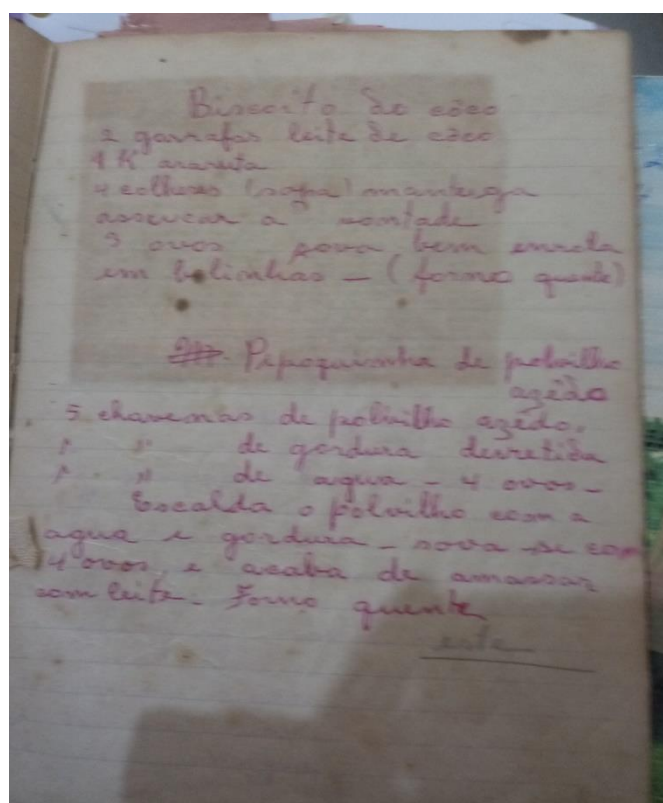 Biscoito de côco
2 garrafas leite de côco
1 K araruta
4 colheres (sopa) manteiga
assucar a vontade
3 ovos sova bem enrola
em bolinhas — (forno quente)
Pipoquinha de polvilho
azêdo
5 chavenas de polvilho azêdo.
1 " de gordura derretida
1 " de agua - 4 ovos -
Escalda o polvilho com a
agua e gordura - sova-se com
4 ovos e acaba de amassar
com leite - Forno quente